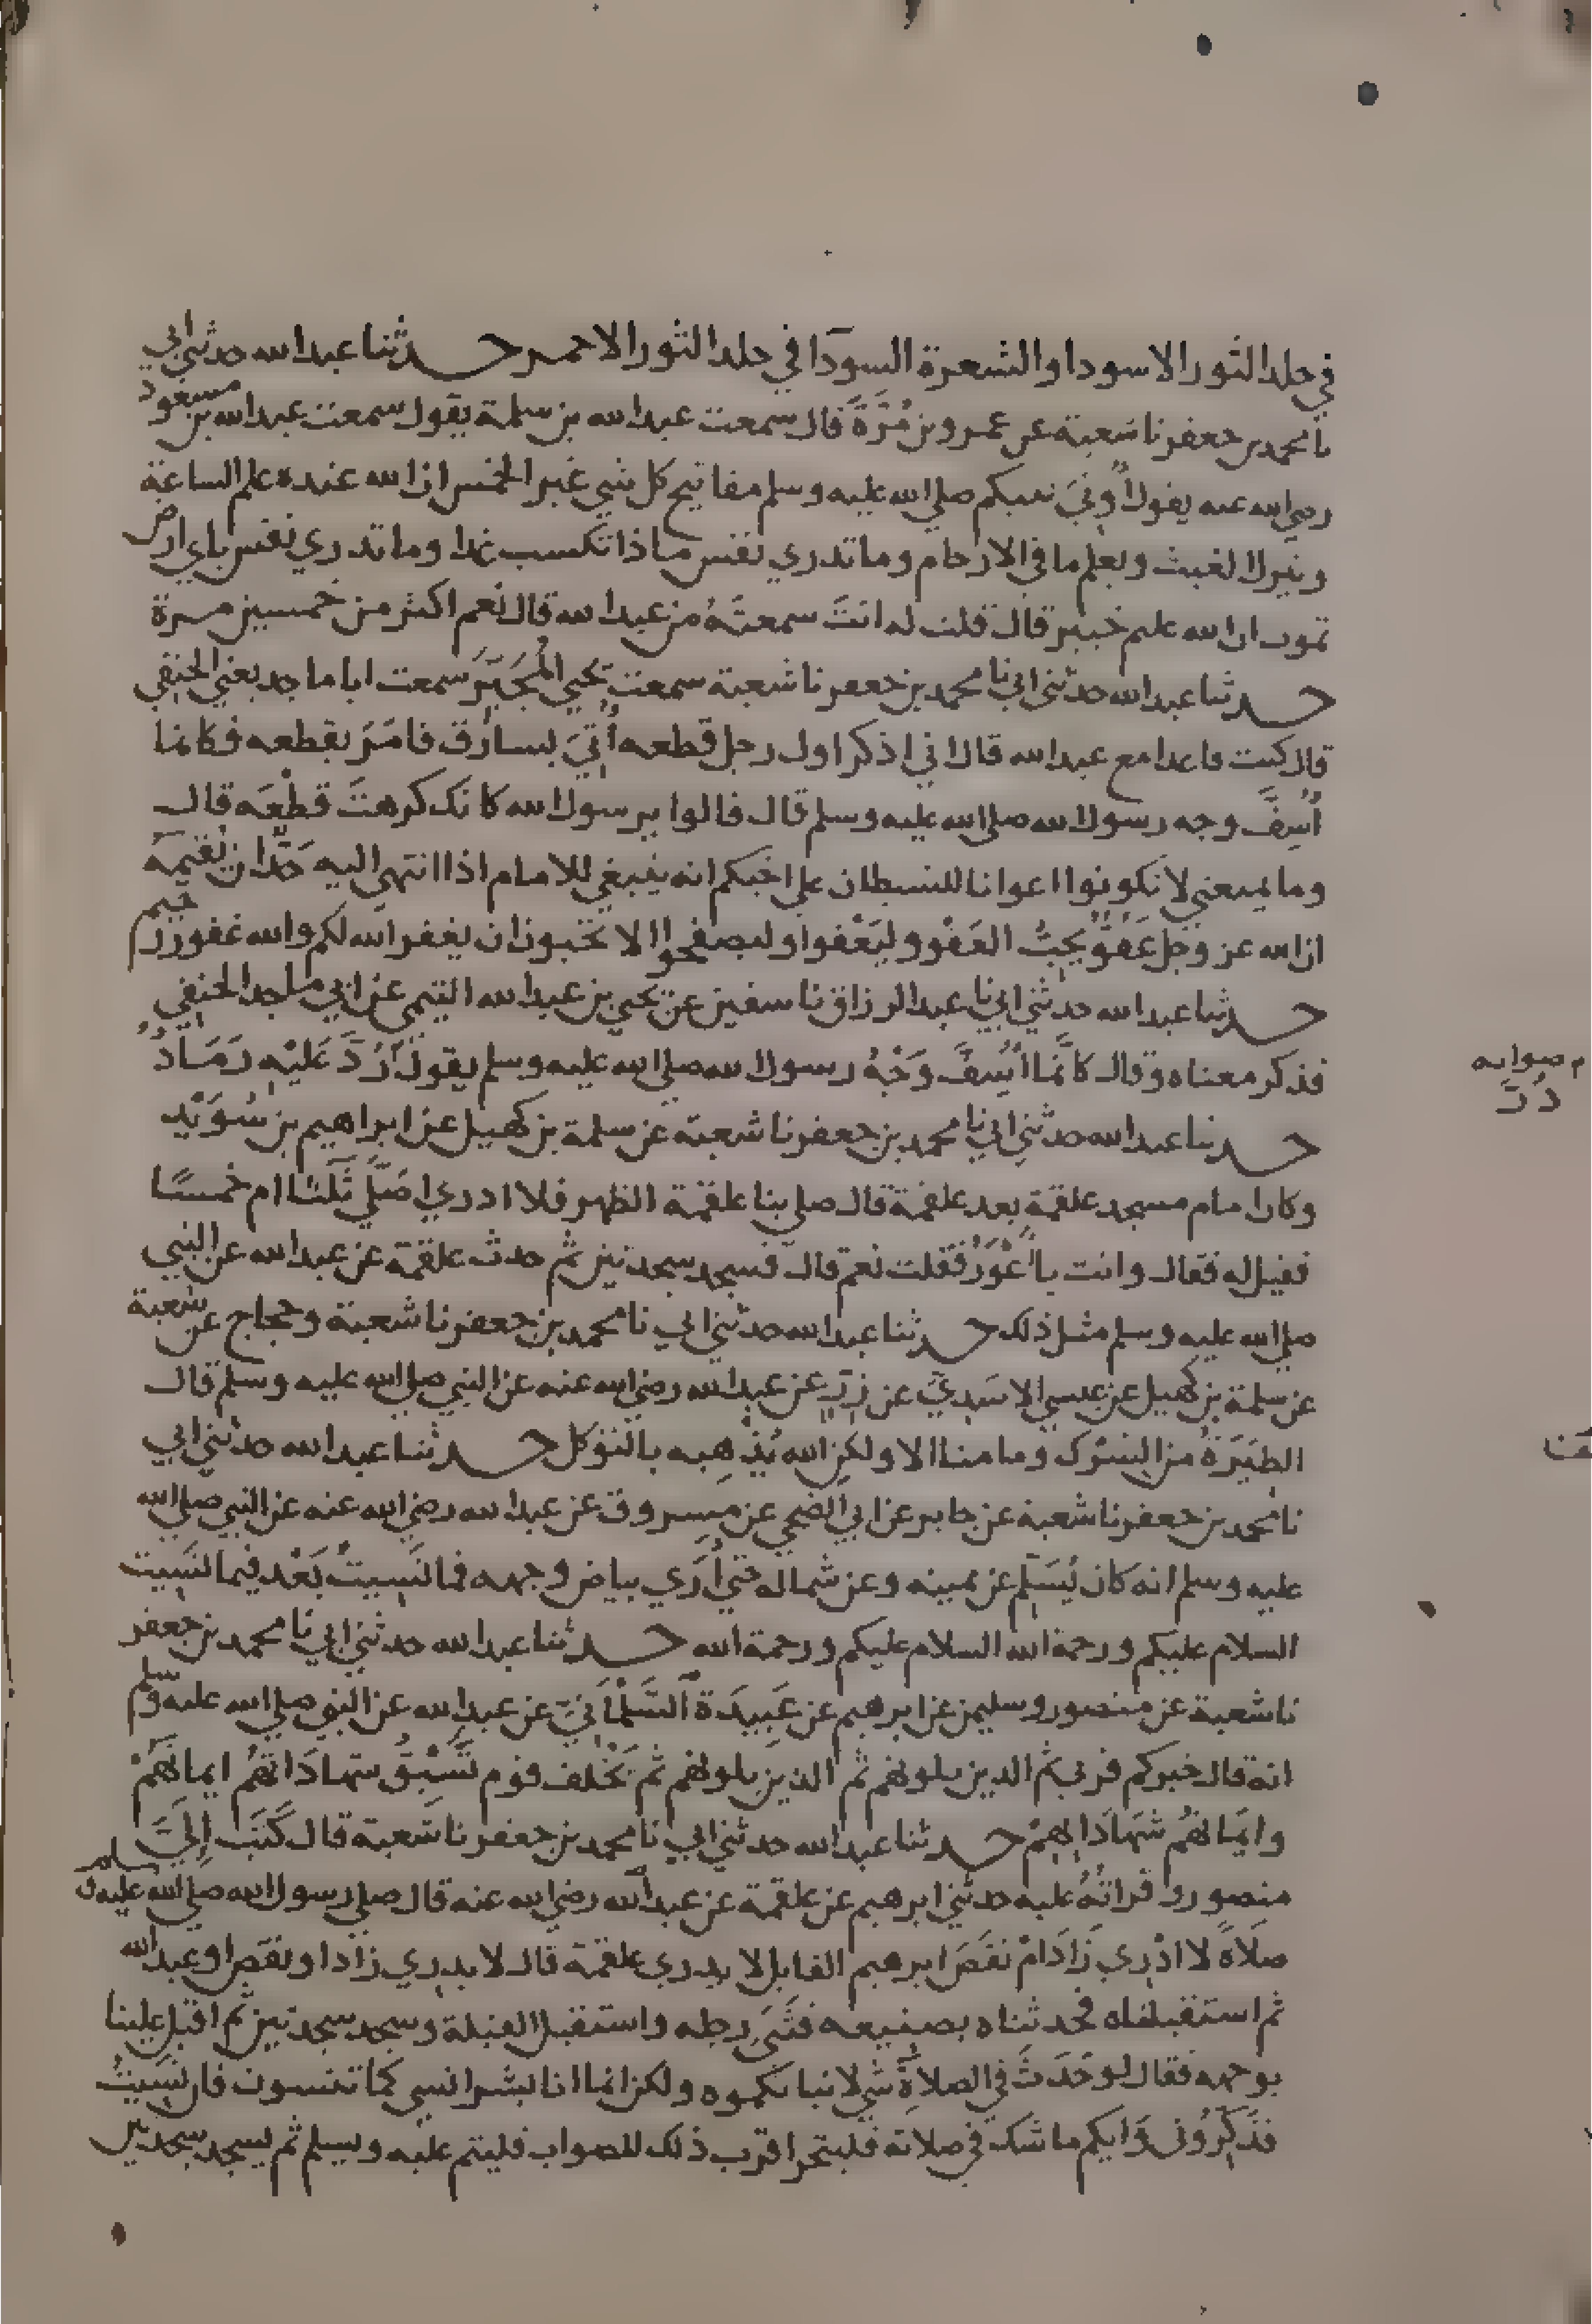 في جلد الثور الاسود او الشعرة السودآ في جلد الثور الاحمر حدثنا عبد الله حدثني ابي
نا محمد بن جعفر نا شعبة عن عمرو بن مُرَّةَ قال سمعت عبد الله بن سلمة يقول سمعت عبد الله بن مسعود
رضي الله عنه يقول اُوتيَ نبيكم صلى الله عليه وسلم مفاتيح كل شي غير الخمس ان الله عنده علم الساعة
وينزل الغيث ويعلم ما في الارحام وما تدري نفس ماذا تكسب غدا وما تدري نفس باي ارض
تموت ان الله عليم خبير قال قلت له انتَ سمعتَهُ من عبد الله قال نعم اكثر من خمسين مرة
حدثنا عبد الله حدثني ابي نا محمد بن جعفر نا شعبة سمعت يحيي المُجَبِّرَ سمعت ابا ماجد يعني الحنفي
قال كنت قاعدا مع عبد الله قال اني اذكر اول رجل قطعه اُتيَ بسارق فامَرَ بقطعه فكانما
اُسِفَّ وجه رسول الله صلى الله عليه وسلم قال قالوا يرسول الله كانك كرهتَ قطْعَه قال
وما يمنعني لا تكونوا اعوانا للشيطان على اخيكم انه ينبغي للامام اذا انتهى اليه حَدٌّ ان يُقيمَهُ
ان الله عز وجل عَفُوٌّ يحِبُّ العَفْو وليَعْفوا وليصفحوا الا تحبون ان يغفر الله لكم والله غفور رحيم
حدثنا عبد الله حدثني ابي نا عبد الرزاق نا سفين عن يحيى بن عبد الله التيمي عن ابي ماجد الحنفي
فذكر معناه وقال كانَّما اُسِفَّ وَجْهُ رسول الله صلى الله عليه وسلم يقول اَرَدَّ عَلَيْهِ رَمَادٌ
م صوابه
ذُرَّ
حدثنا عبد الله حدثني ابي نا محمد بن جعفر نا شعبة عن سلمة بن كهيل عن ابراهيم بن سُوَيْد
وكان امام مسجد علقمة بعد علقمة قال صلى بنا علقمة الظهر فلا ادري اصَلَّى ثَلَثا ام خمسًا
فقيل له فقال وانت يا اَعْوَرُ فقلت نعم قال فسجد سجدتين ثم حدث علقمة عن عبد الله عن النبي
صلى الله عليه وسلم مثل ذلك حدثنا عبد الله حدثني ابي نا محمد بن جعفر نا شعبة وحجاج عن شعبة
عن سلمة بن كهيل عن عيسي الاسَدِيّ عن زِرّ عن عبد الله رضي الله عنه عن النبي صلى الله عليه وسلم قال
الطِيَرَةُ من الشرك وما منا الا ولكن الله يُذْهِبه بالتوكل حدثنا عبد الله حدثني ابي
نا محمد بن جعفر نا شعبة عن جابر عن ابي الضحى عن مسروق عن عبد الله رضي الله عنه عن النبي صلى الله
عليه وسلم انه كان يُسَلِّم عن يمينه وعن شماله حتي اُرَي بياض وجهه فما نَسِيتُ بَعْد فيما نسِيت
السلام عليكم ورحمة الله السلام عليكم ورحمة الله حدثنا عبد الله حدثني ابي نا محمد بن جعفر
نا شعبة عن منصور وسليمن عن ابرهيم عن عَبِيدَة السَّلْمَانيّ عن عبد الله عن النبي صلى الله عليه وسلم
انه قال خيركم قرني ثم الذين يلونهم ثم الذين يلونهم ثم يَخْلف قوم تَسْبِقُ شهادَاتهُم ايمانَهُمْ
وايمانهُم شهَادَاتِهِمْ حدثنا عبد الله حدثني ابي نا محمد بن جعفر نا شعبة قال كَتَبَ اِلَيَّ
منصور وقراتهُ عليه حدثني ابرهيم عن علقمة عن عبد الله رضي الله عنه قال صلى رسول الله صلى الله عليه وسلم
صلاةً لا ادْرِي زَادَ امْ نقصَ ابرهيم القايل لا يدري علقمة قال لا يدري زاد او نقَص او عبد الله
ثم استقبلناه فحدثناه بصنيعه فثَنَى رجله واستقبل القبلة وسجد سجدتين ثم اقبل علينا
بوجهه فقال لو حَدَثَ في الصلاةِ شي لانباتكموه ولكن انما انا بشر انسي كما تنسون فان نَسِيتُ
فذَكِّرُوني وَايكم ما شك في صلاته فليتحر اقرب ذلك للصواب فليتم عليه ويسلم ثم يسجد سجدتين